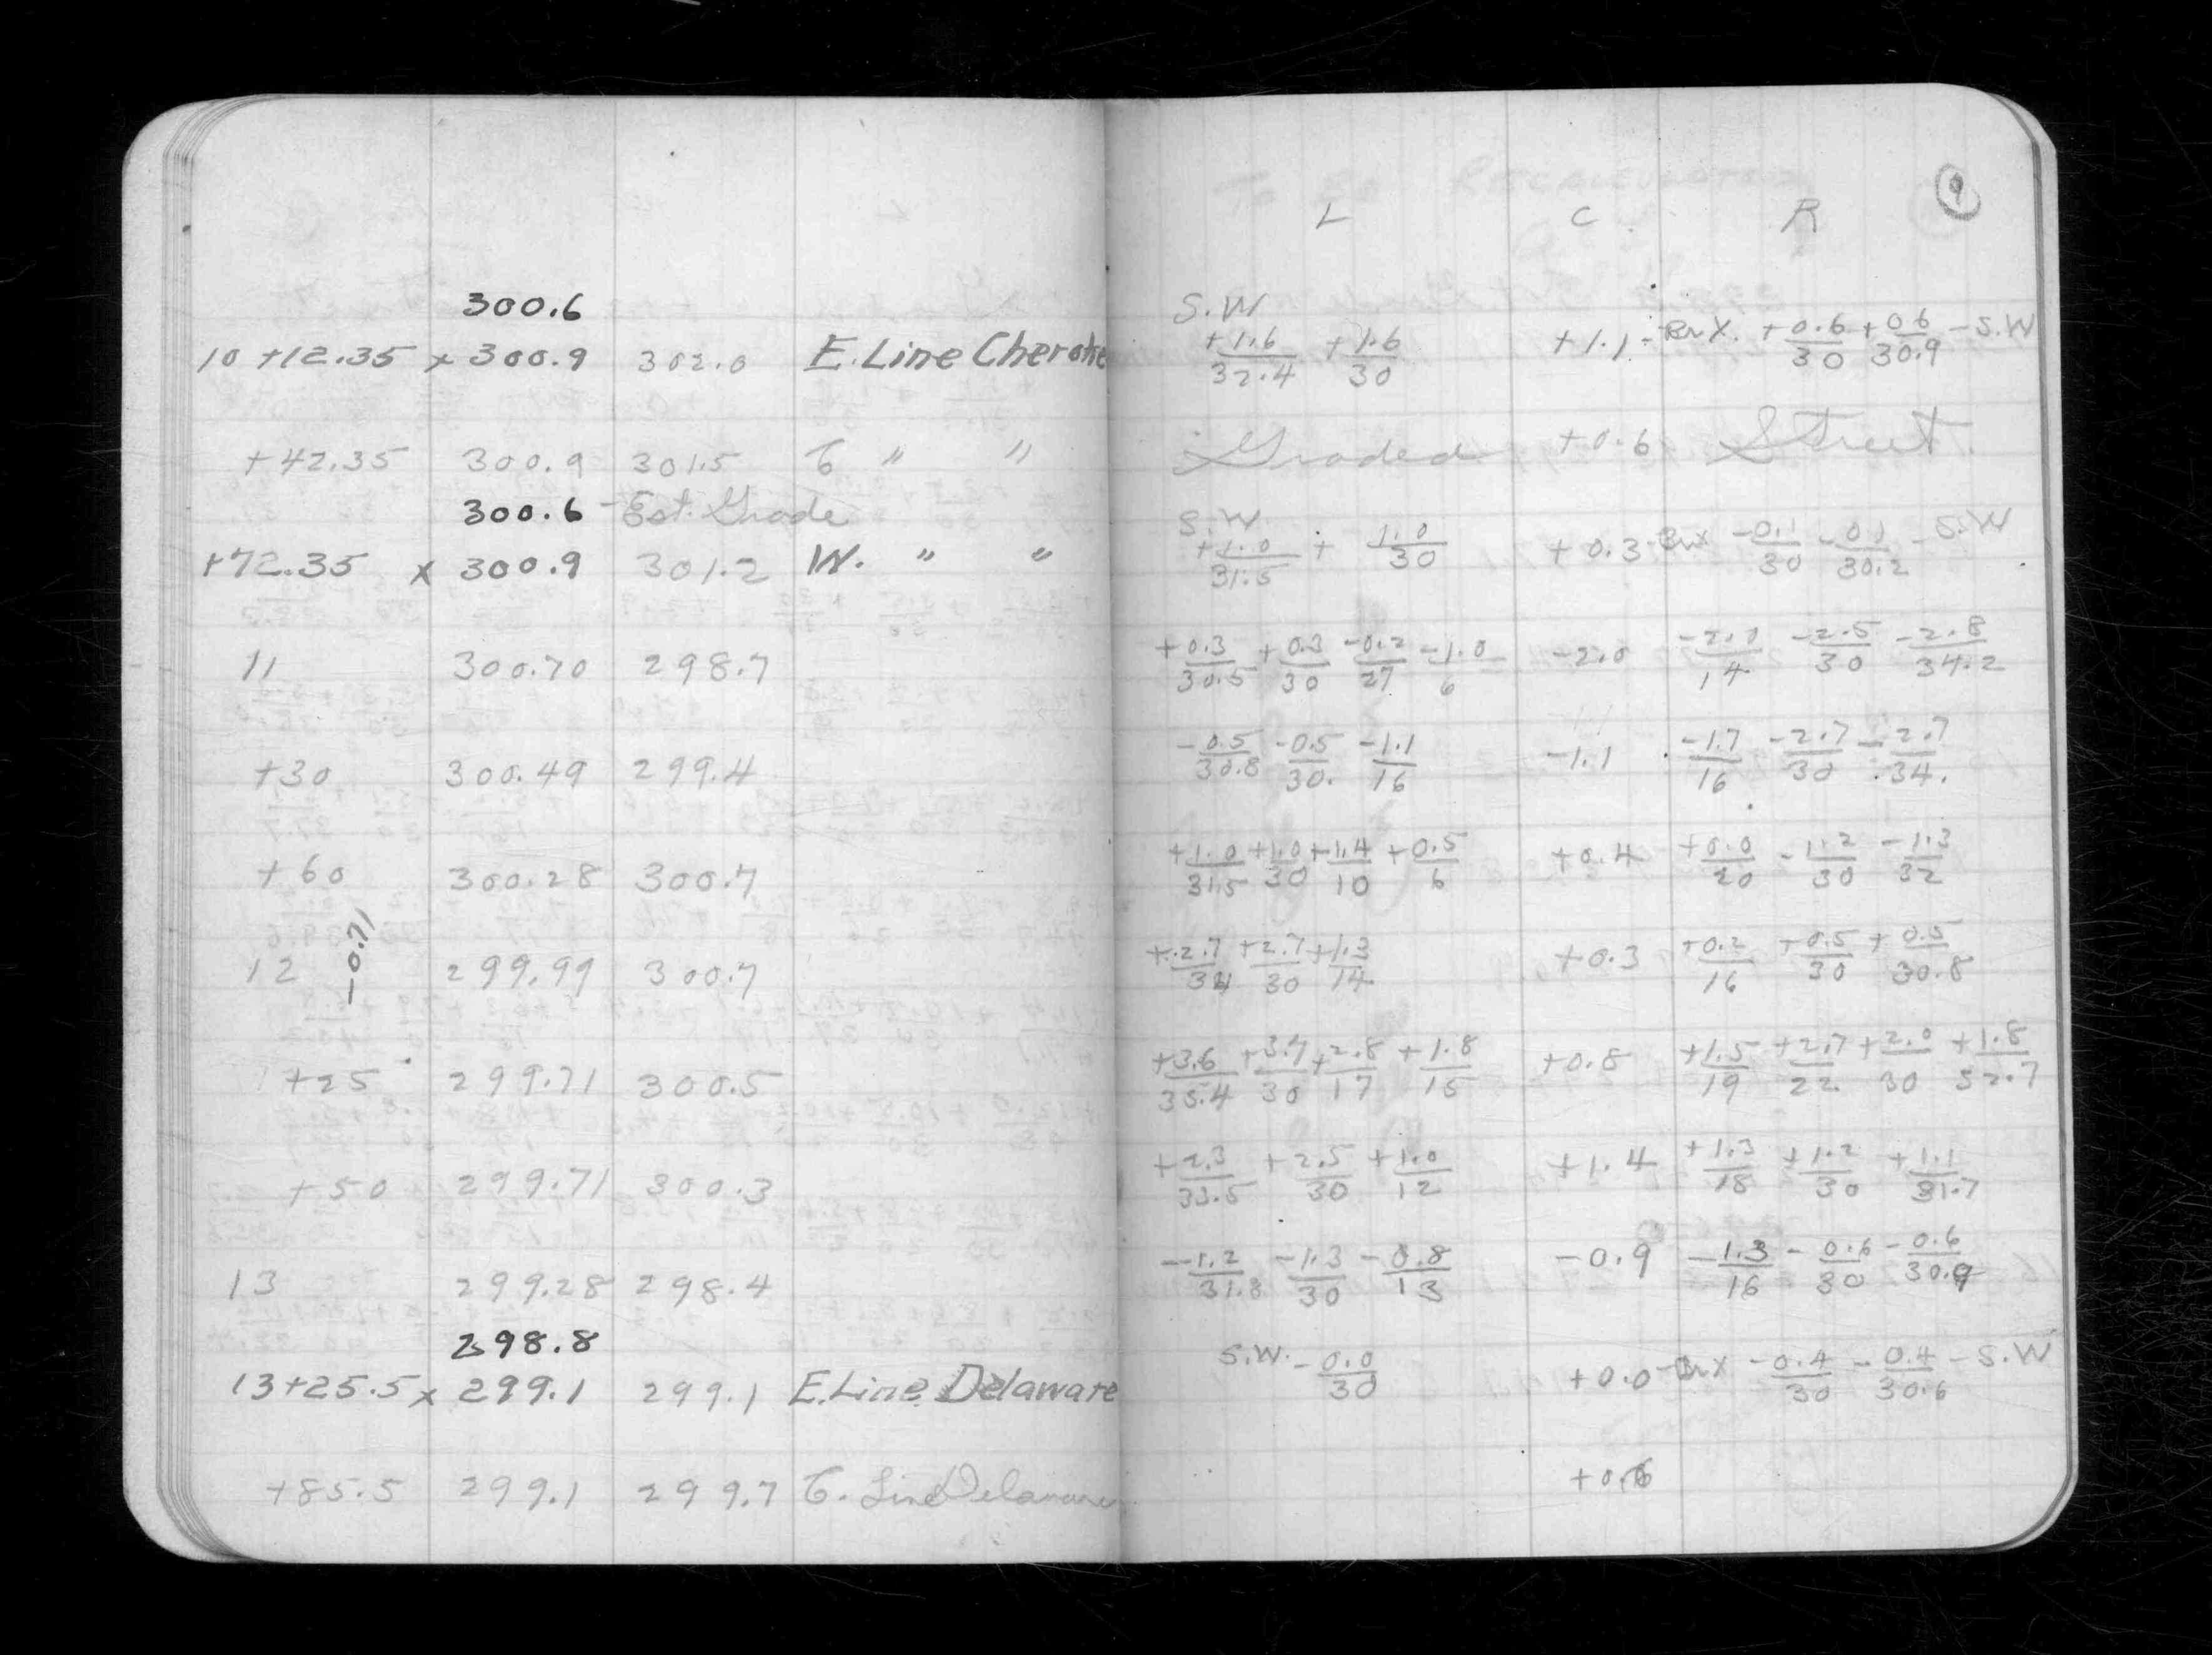 9
L C R
300.6
S.W
10 +12.35 x 300.9 302.0 E. Line Cherokee +1.6/32.4 +1.6/30 +1.1 +0.6/30 +0.6/30.9 - S.W
+42.35 300.9 301.5 " " Graded +0.6 Street
300.6 - Est. Grade
S.W.
+72.35 x 300.9 301.2 W. " " +1.0/31.5 + 1.0/30 +0.3 -0.1/30 -0.1/30.2 - S.W
11 300.70 298.7 +0.3/30.5 +0.3/30 -0.2/27 -1.0/6 -2.0 -2.0/14 -2.5/30 -2.8/34.2
+30 300.49 299.4 -0.5/30.8 -0.5/30. -1.1/16 -1.1 -1.7/16 -2.7/30 -2.7/34.
+60 300.28 300.7 +1.0/31.5 +1.0/30 +1.4/10 +0.5/6 +0.4 +0.0/20 -1.2/30 -1.3/32
-0.71
12 299.99 300.7 +2.7/34 +2.7/30 +1.3/14 +0.3 +0.2/16 +0.5/30 +0.5/30.8
+25 299.71 300.5 +3.6/35.4 +3.7/30 +2.8/17 +1.8/15 +0.8 +1.5/19 +2.7/22 +2.0/30 +1.8/32.7
+50 299.71 300.3 +2.3/33.5 +2.5/30 +1.0/12 +1.4 +1.3/18 +1.2/30 +1.1/31.7
13 299.28 298.4 -1.2/31.8 -1.3/30 -0.8/13 -0.9 -1.3/16 -0.6/30 -0.6/30.9
298.8
13+25.5 x 299.1 299.1 E. Line Delaware S.W. -0.0/30 +0.0 -0.4/30 -0.4/30.6 - S.W
+85.5 299.1 299.7 Line Delaware +0.6